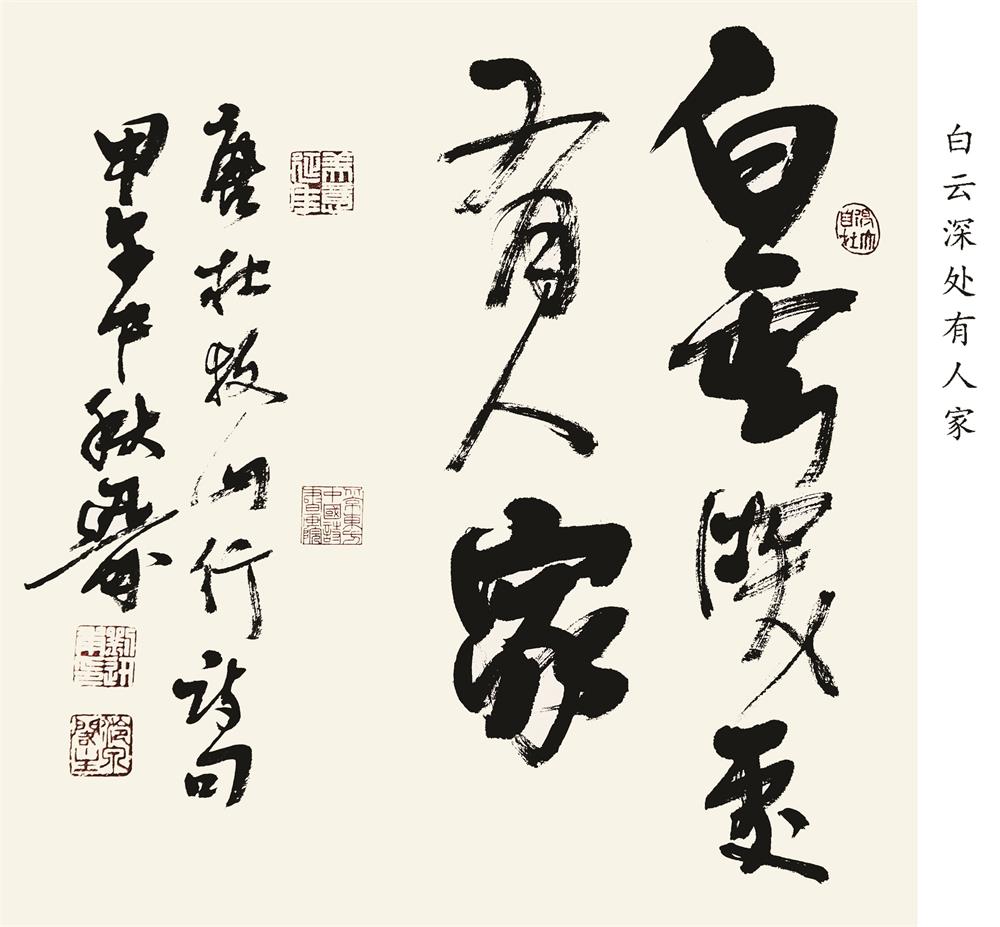 白雲深處
有人家
唐杜牧山行詩句
甲午中秋
白云深处有人家